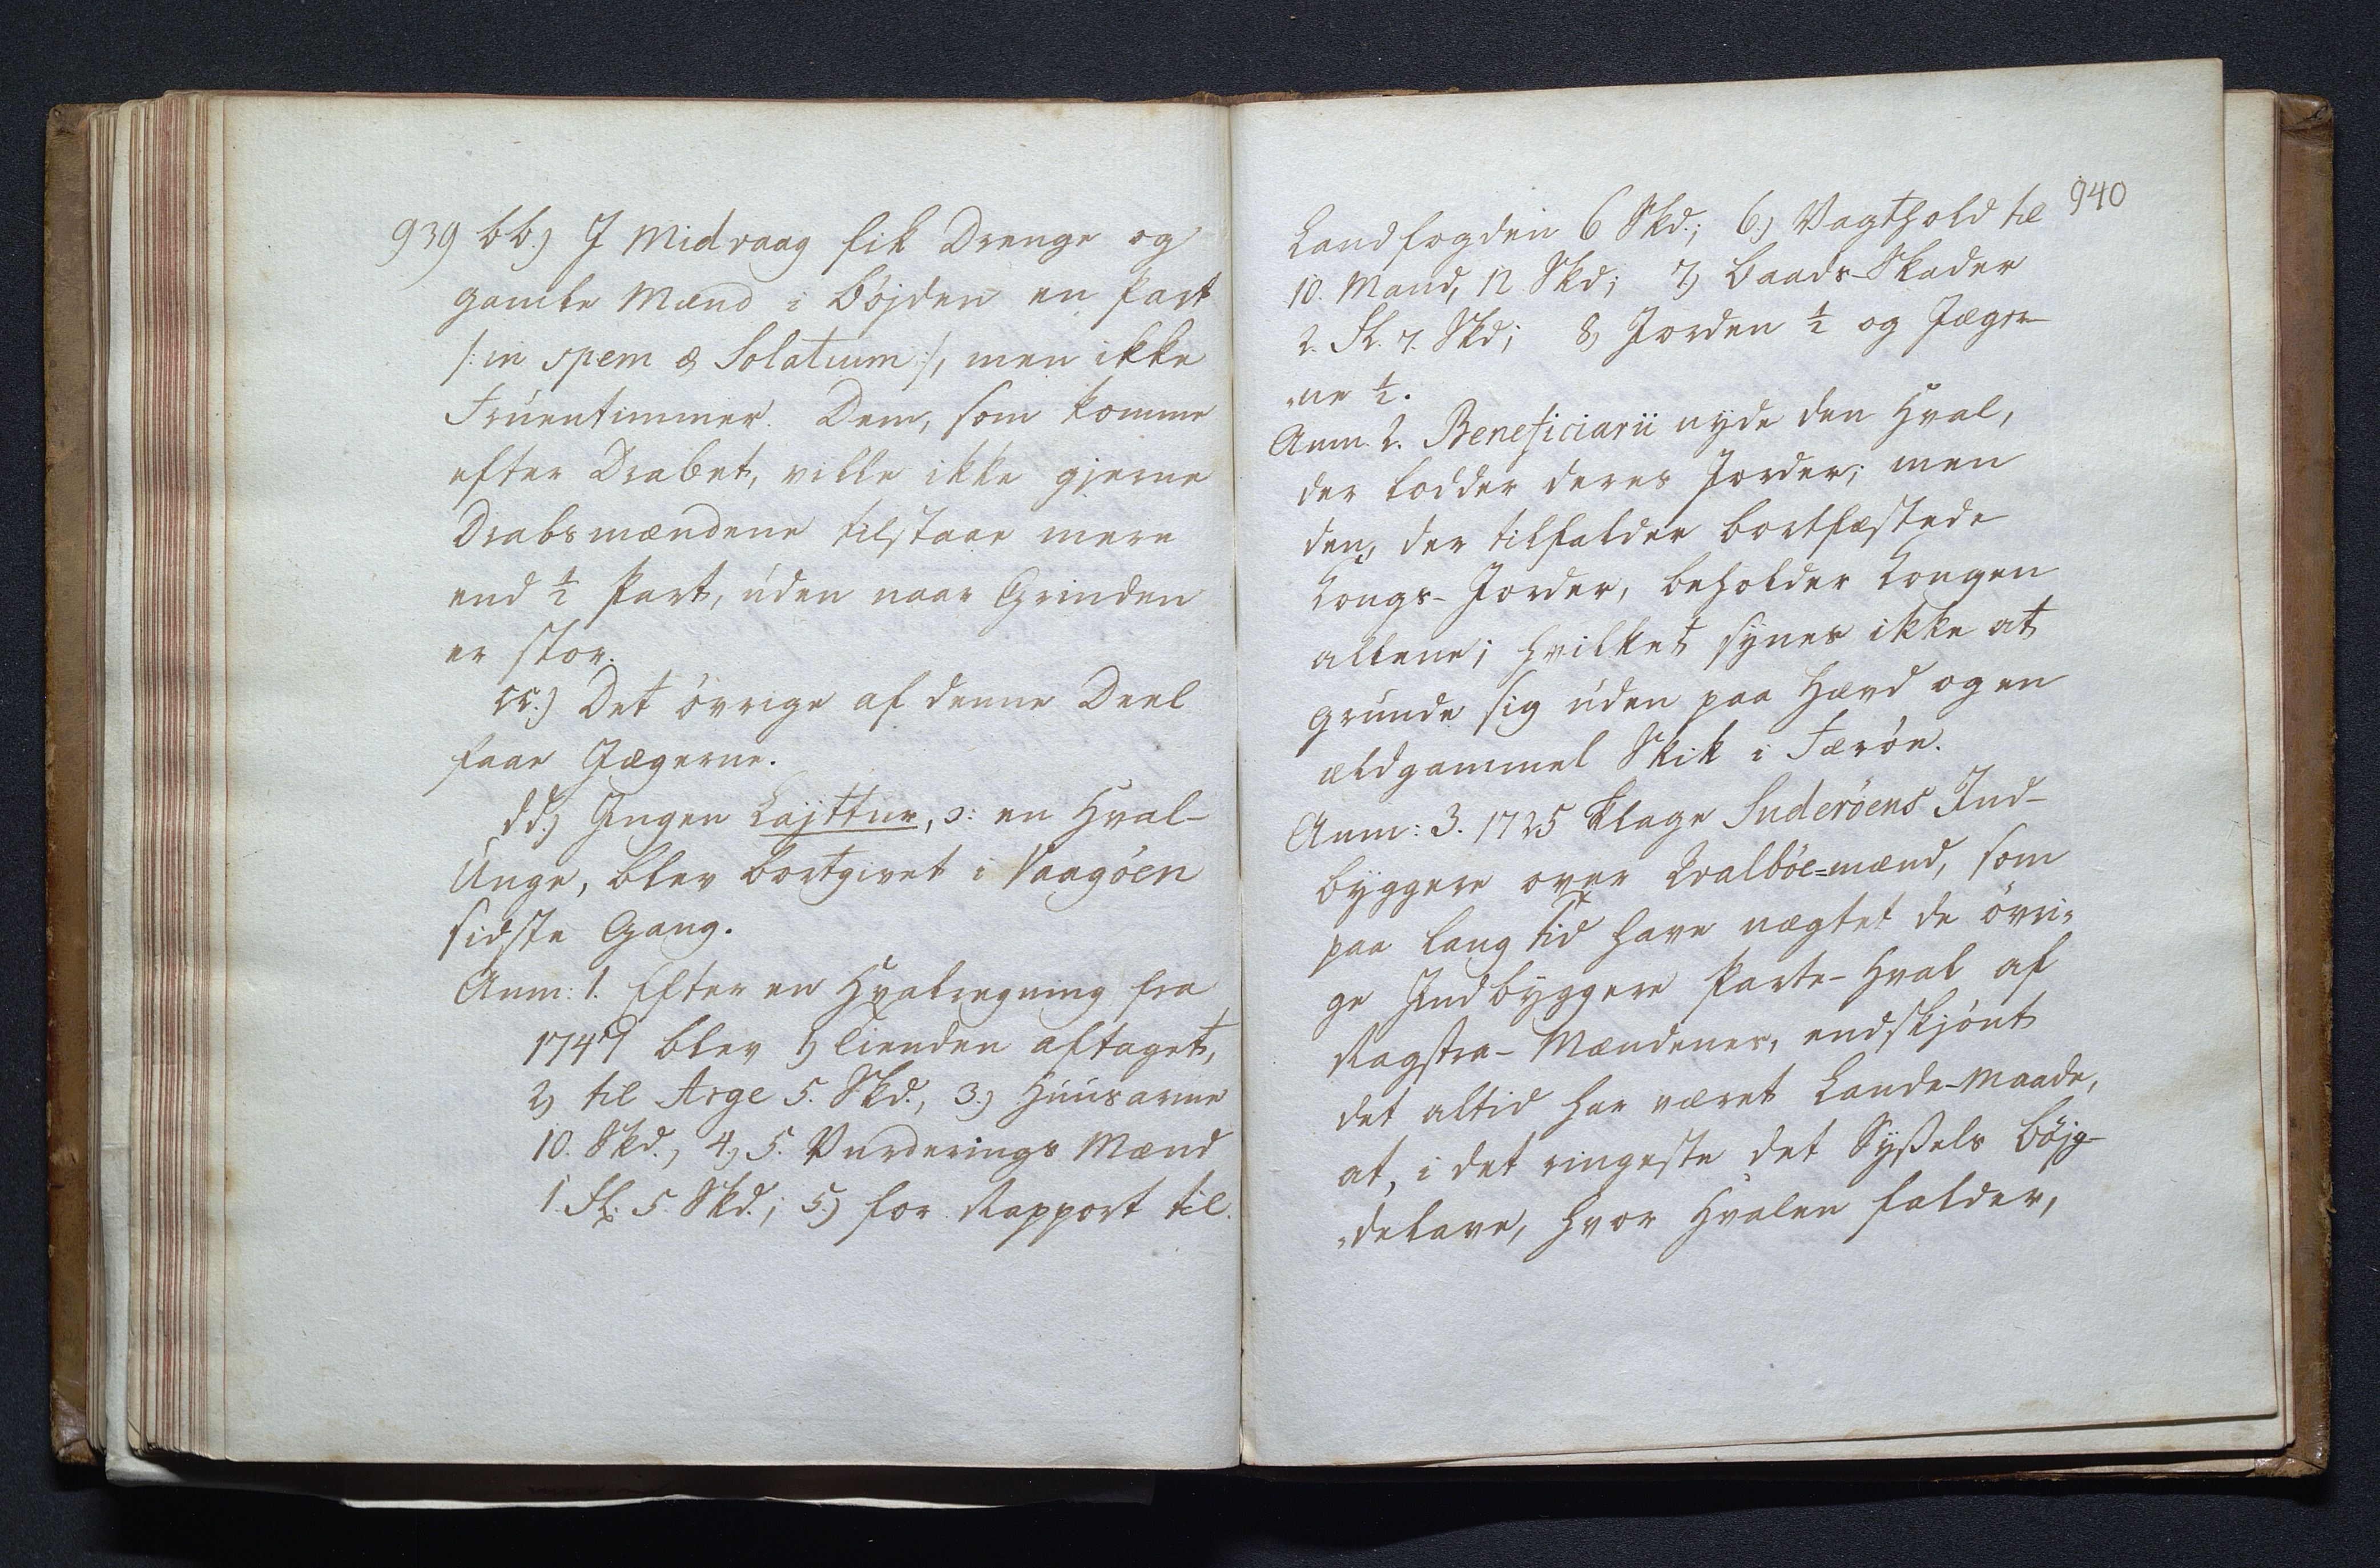 939 bb.) I Midvaag fik Drenge og
gamle Mænd i Böjden en Part
/: in spem & Solatium :/, men ikke
Fruentimmer. Dem, som komme
efter Drabet, ville ikke gjerne
Drabsmændene tilstaae mere
end ½ Part, uden naar Grinden
er stor.
cc.) Det övrige af denne Deel
faae Jægerne.
dd.) Ingen Lajttur, ɔ: en Hval-
Unge, blev bortgivet i Vaagöen
sidste Gang.
Anm: 1. Efter en Hvalregning fra
1747 blev 1) Tienden aftaget,
2) til Arge 5. Skd., 3.) Huusarme
10. Skd., 4.) 5. Vurderings Mænd
1. Fl. 5 Skd.; 5.) for Rapport til
940
Landfogden 6 Skd.; 6.) Vagthold til
10. Mand, 12 Skd; 7.) Baads-Skader
2. Fl. 7. Skd; 8.) Jorden ½ og Jæger-
ne ½.
Anm. 2. Beneficiarii nyde den Hval,
der lodder deres Jorder; men
den, der tilfalder bortfæstede
Kongs-Jorder, beholder Kongen
allene; hvilket synes ikke at
grunde sig uden paa Hævd og en
ældgammel Skik i Færöe.
Anm: 3. 1725 klage Suderöens Ind-
byggere over Qvalböe=mænd, som
paa lang Tid have nægtet de övri-
ge Indbyggere Parte-Hval af
Ragstra-Mændener, endskjönt
det altid har været Lands-Maade,
at, i det ringeste det Syßels Böjg-
delave, hvor Hvalen falder,